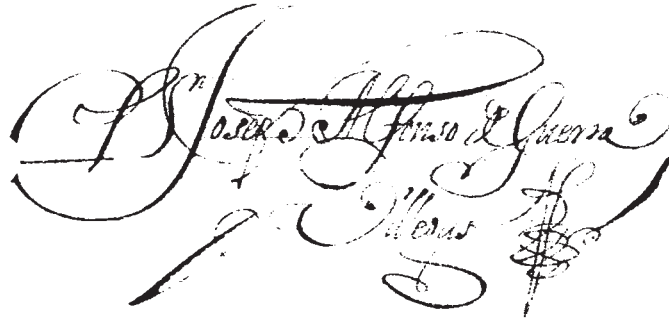 Dn Joseph Alfonso de Guerra
y Villegas